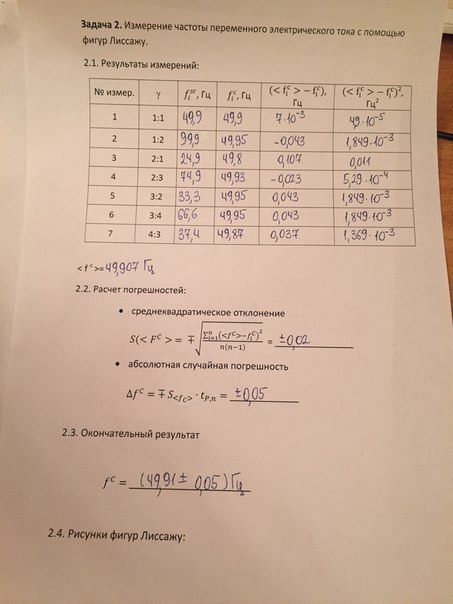 Задача 2. Измерение частоты переменного электрического тока с помощью
фигур Лиссажу.
2.1. Результаты измерений:
№ измер. γ fᵢᵉᵗ, Гц fᵢᶜ, Гц (< fᵢᶜ > −fᵢᶜ), Гц (< fᵢᶜ > −fᵢᶜ)², Гц²
1 1:1 49,9 49,9 7·10⁻³ 4,9·10⁻⁵
2 1:2 99,9 49,95 -0,043 1,849·10⁻³
3 2:1 24,9 49,8 0,107 0,011
4 2:3 74,9 49,93 -0,023 5,29·10⁻⁴
5 3:2 33,3 49,95 0,043 1,849·10⁻³
6 3:4 66,6 49,95 0,043 1,849·10⁻³
7 4:3 37,4 49,87 0,037 1,369·10⁻³
<fᶜ>=49,907 Гц
2.2. Расчет погрешностей:
• среднеквадратическое отклонение
S(< Fᶜ >= ∓√(∑ⁿᵢ₌₁(<fᶜ>−fᵢᶜ)²/n(n−1)) = ±0,02
• абсолютная случайная погрешность
Δfᶜ = ∓S<fᶜ> · tP,n = ±0,05
2.3. Окончательный результат
fᶜ = (49,91 ± 0,05) Гц
2.4. Рисунки фигур Лиссажу: